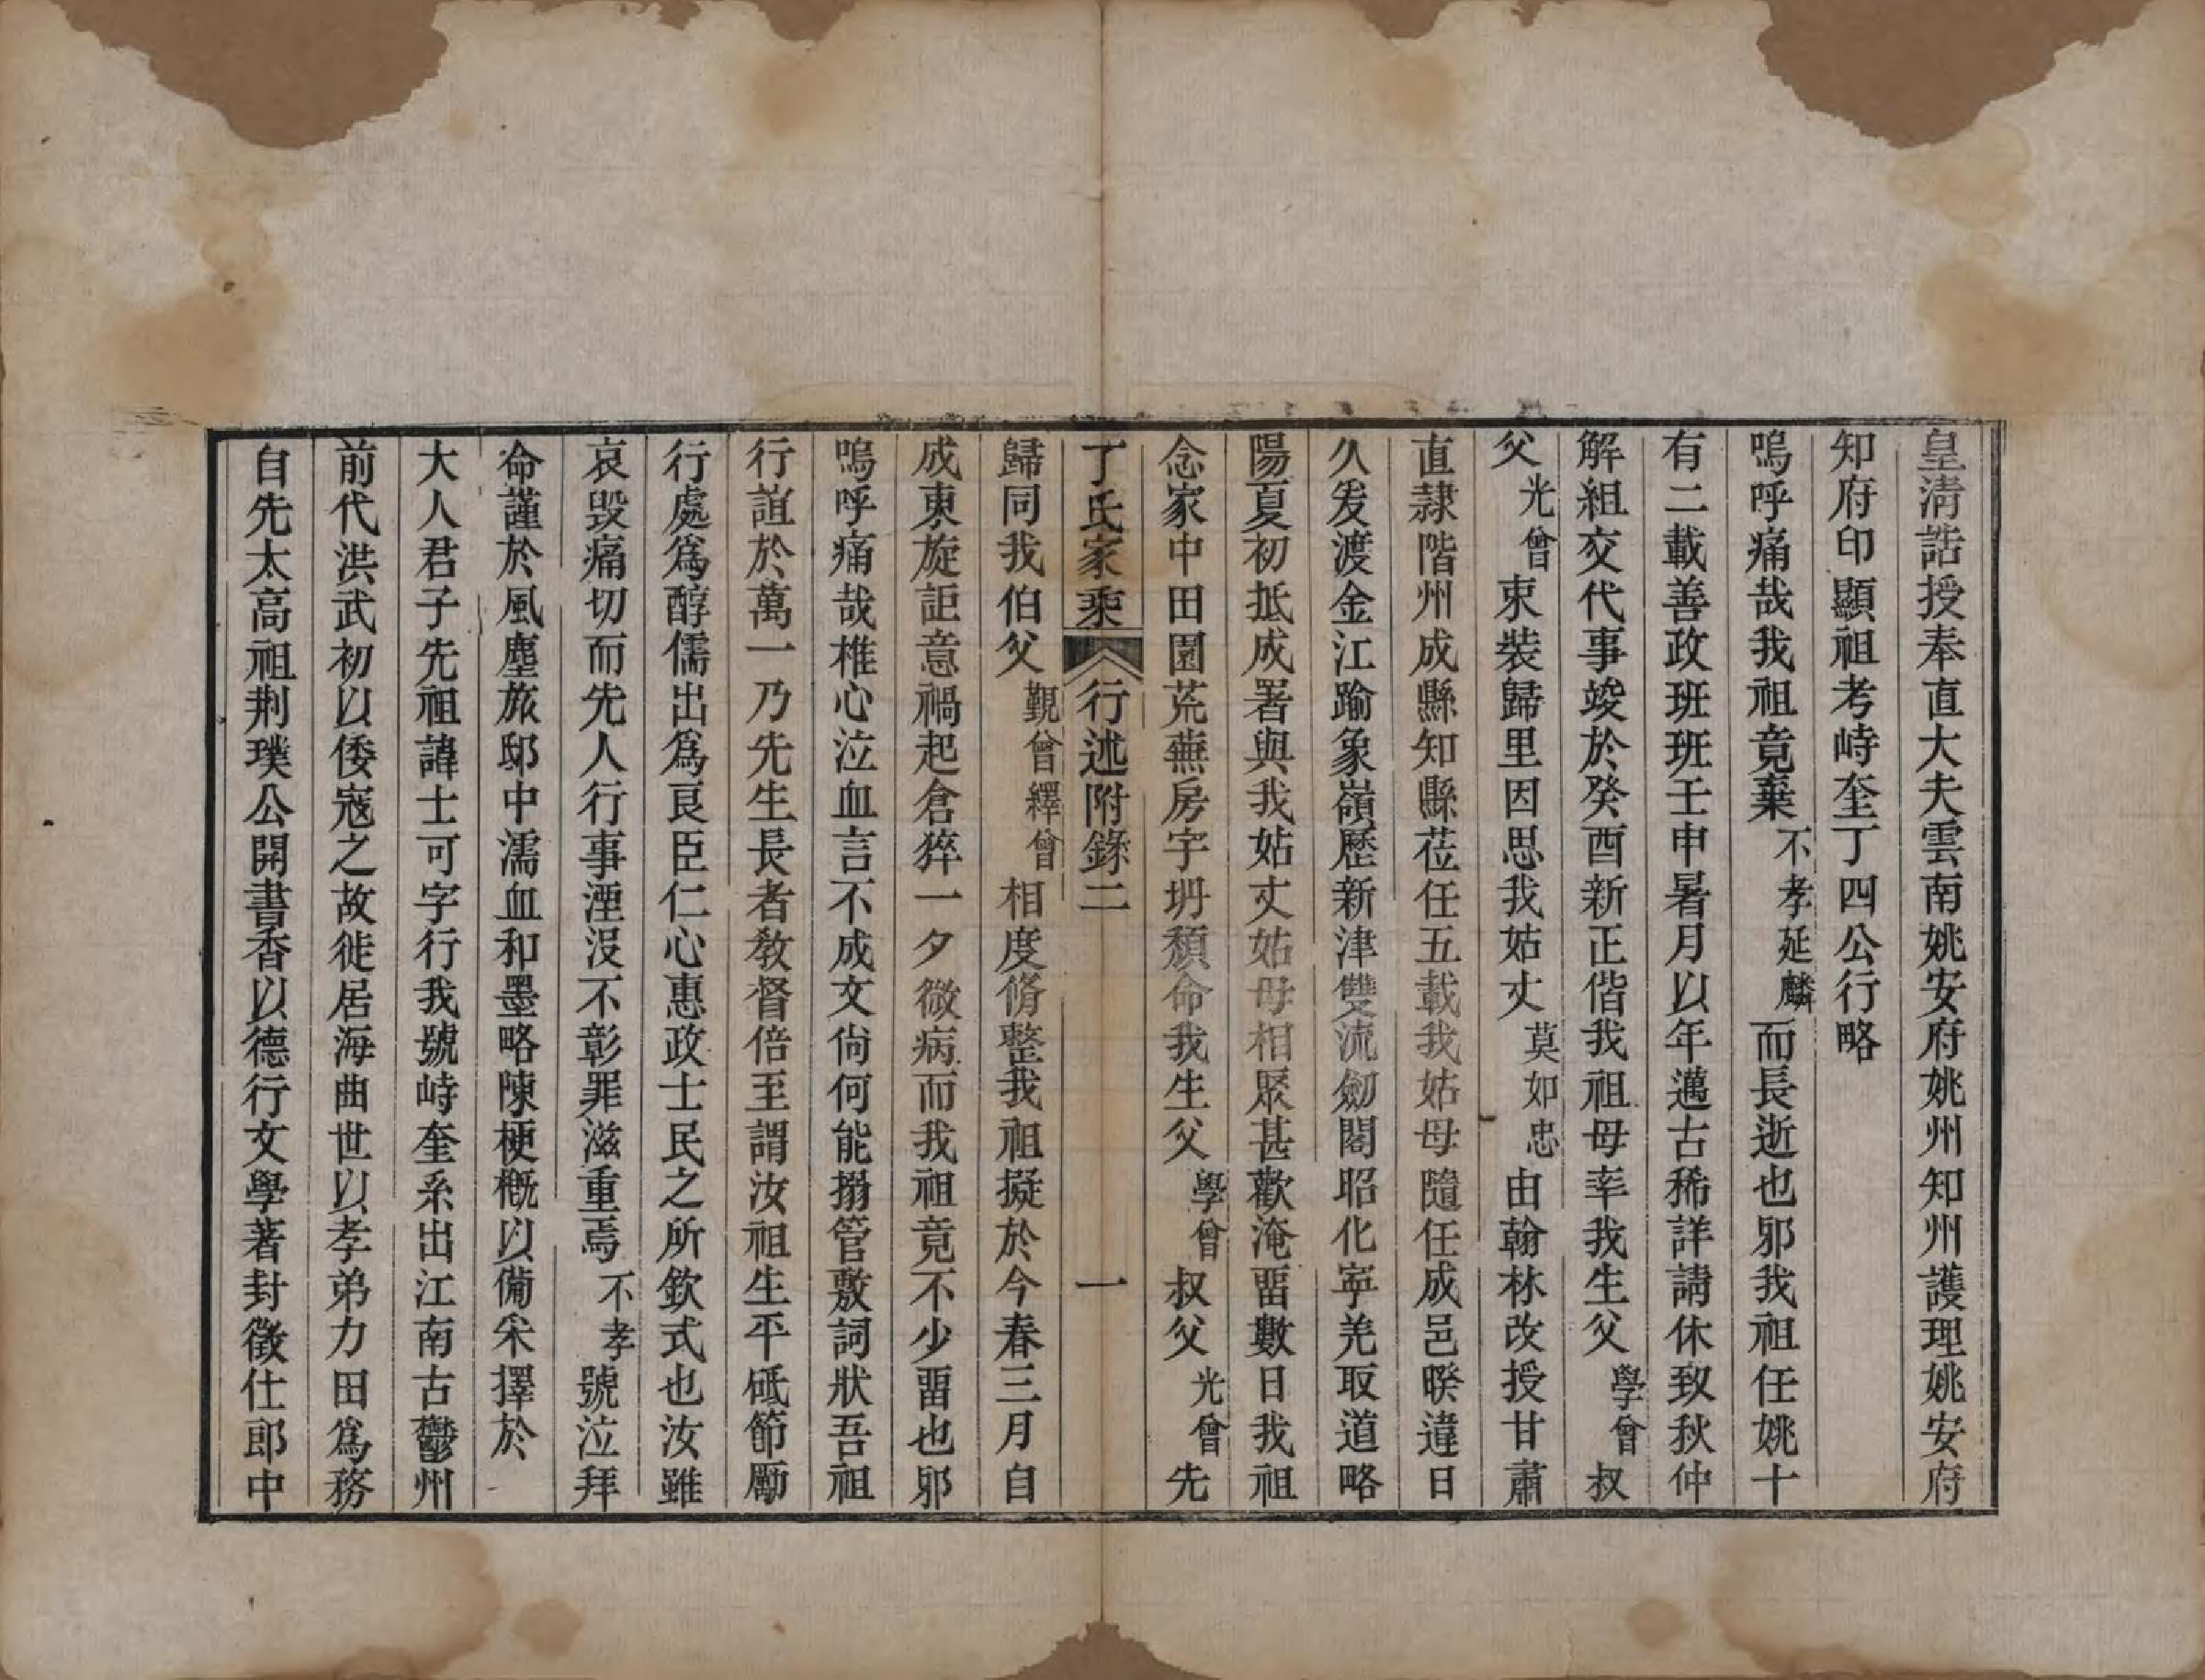 皇淸誥授奉直大夫雲南姚安府姚州知州護理姚安府
知府印顯祖考峙奎丁四公行略
嗚呼痛哉我祖竟棄不孝延麟而長逝也邪我祖任姚十
有二載善政班班壬申暑月以年邁古稀詳請休致秋仲
解組交代事竣於癸酉新正偕我祖母率我生父學曾叔
父光曾束裝歸里因思我姑丈莫如忠由翰林改授甘肅
直隸階州成縣知縣莅任五載我姑母隨任成邑暌違日
久爰渡金江踰象嶺歷新津雙流劒閣昭化寧羌取道略
陽夏初抵成署與我姑丈姑母相聚甚歡淹畱數日我祖
念家中田園荒蕪房宇坍頹命我生父學曾叔父光曾先
丁氏家乘 行述附錄二 一
歸同我伯父覲曾繹曾相度脩整我祖擬於今春三月自
成東旋詎意禍起倉猝一夕微病而我祖竟不少畱也邪
嗚呼痛哉椎心泣血言不成文尙何能搦管敷詞狀吾祖
行誼於萬一乃先生長者敎督倍至謂汝祖生平砥節勵
行處爲醇儒出爲良臣仁心惠政士民之所欽式也汝雖
哀毀痛切而先人行事湮沒不彰罪滋重焉不孝號泣拜
命謹於風塵旅邸中濡血和墨略陳梗槪以備采擇於
大人君子先祖諱士可字行我號峙奎系出江南古鬱州
前代洪武初以倭寇之故徙居海曲世以孝弟力田爲務
自先太高祖荆璞公開書香以德行文學著封徵仕郎中